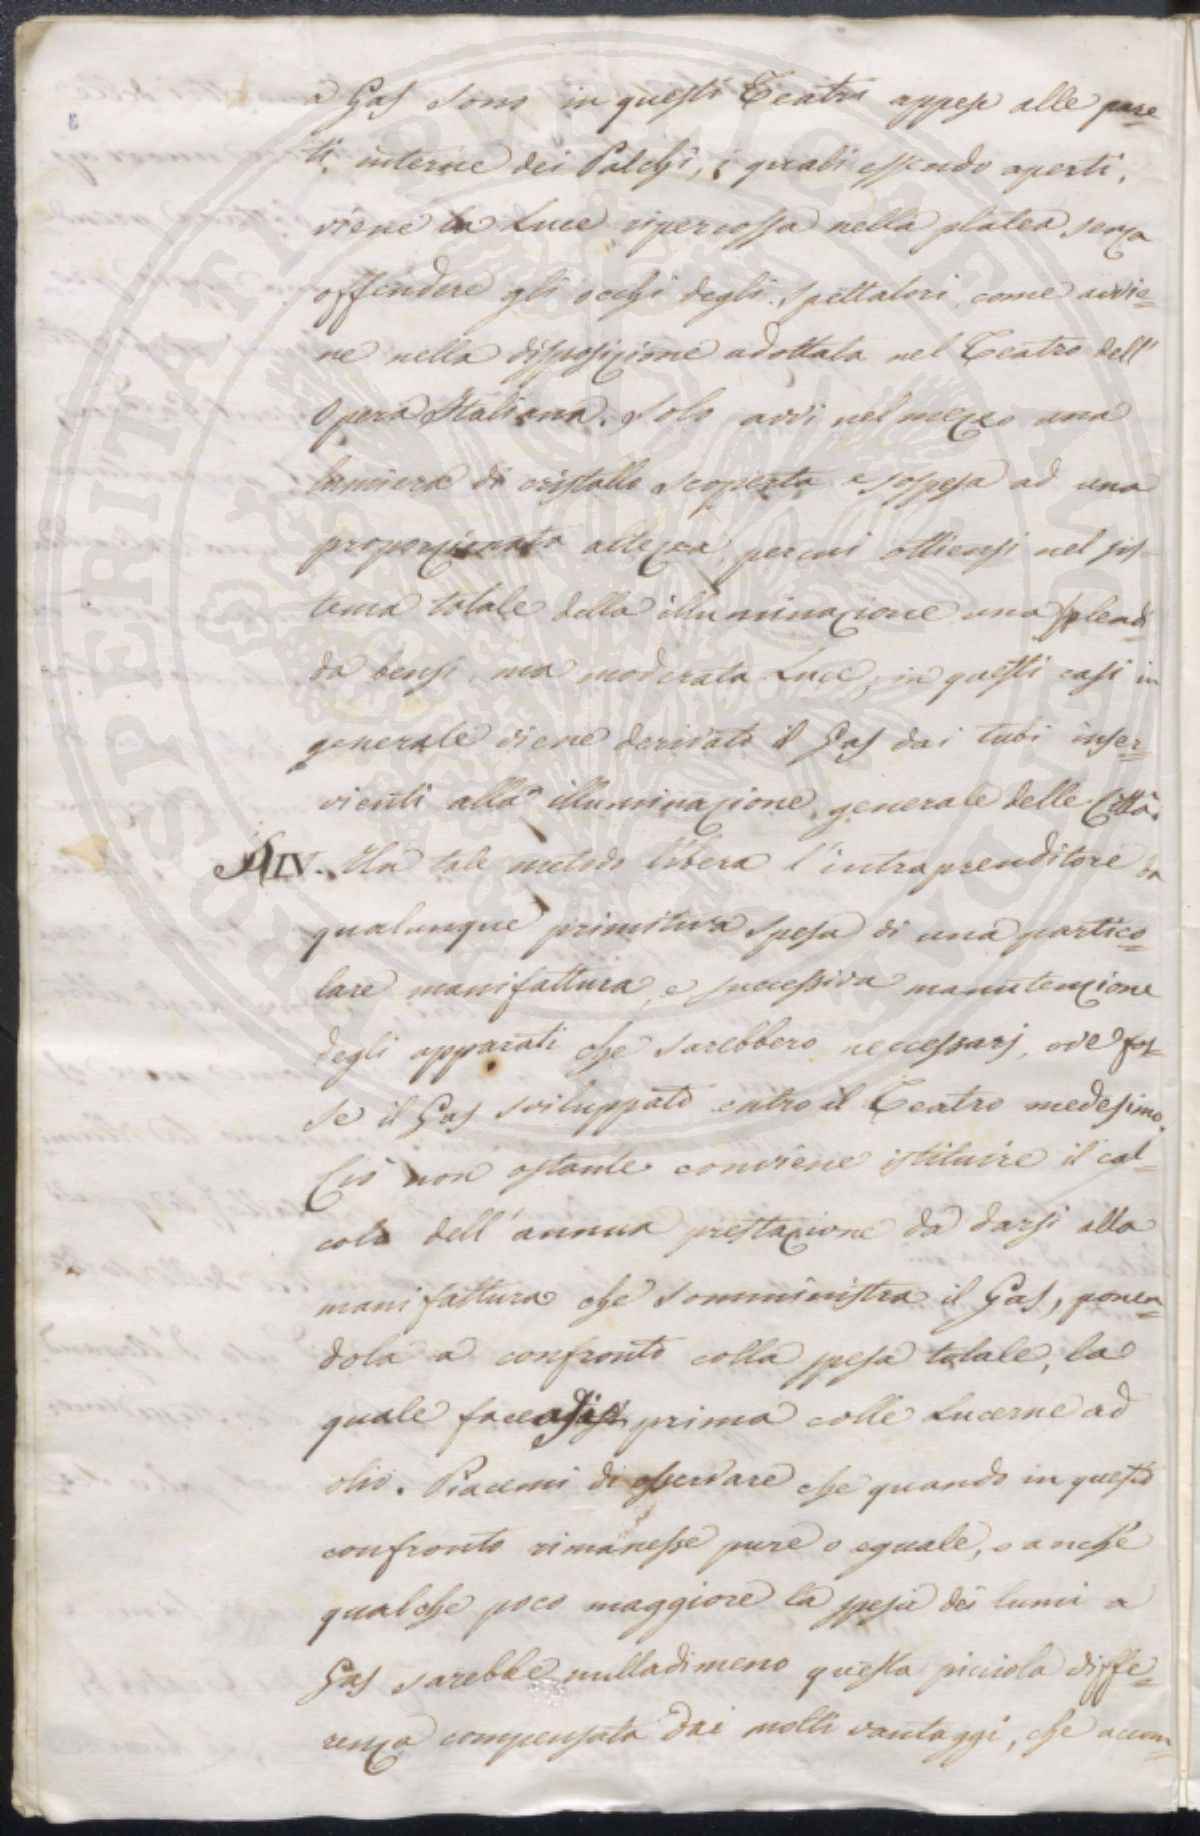 a Gas sono in questi Teatri appese alle pare=
ti interne dei Palchi, i quali essendo aperti,
viene la Luce ripercossa nella platea senza
offendere gli occhi degli Spettatori come avvie=
ne nella disposizione adottata nel Teatro dell'
Opera Italiana. Solo avvi nel mezzo una
lumiera di cristallo scoperta e sospesa ad una
proporzionata altezza, per cui ottiensi nel sis=
tema totale della illuminazione una splendi=
da bensi, ma moderata Luce; in questi casi in
generale viene derivato il Gas dai tubi inser=
vienti alla illuminazione generale delle Città.
§ IV. Un tale metodo libera l'intraprenditore da
qualunque primitiva spesa di una partico=
lare manifattura, e successiva manutenzione
degli apparati che sarebbero neccessarj, ove fos=
se il Gas sviluppato entro il Teatro medesimo.
Ciò non ostante conviene istituire il cal=
colo dell'annua prestazione da darsi alla
manifattura che somministra il Gas, ponen=
dola a confronto colla spesa totale, la
quale faceasi prima colle Lucerne ad
olio. Piacemi di osservare che quando in questo
confronto rimanesse pure o eguale, o anche
qualche poco maggiore la spesa dei lumi a
Gas sarebbe nulladimeno questa picciola diffe=
renza compensata dai molti vantaggi, che accom=
3
PROSPERITATI PVBLICAE AVGENDAE